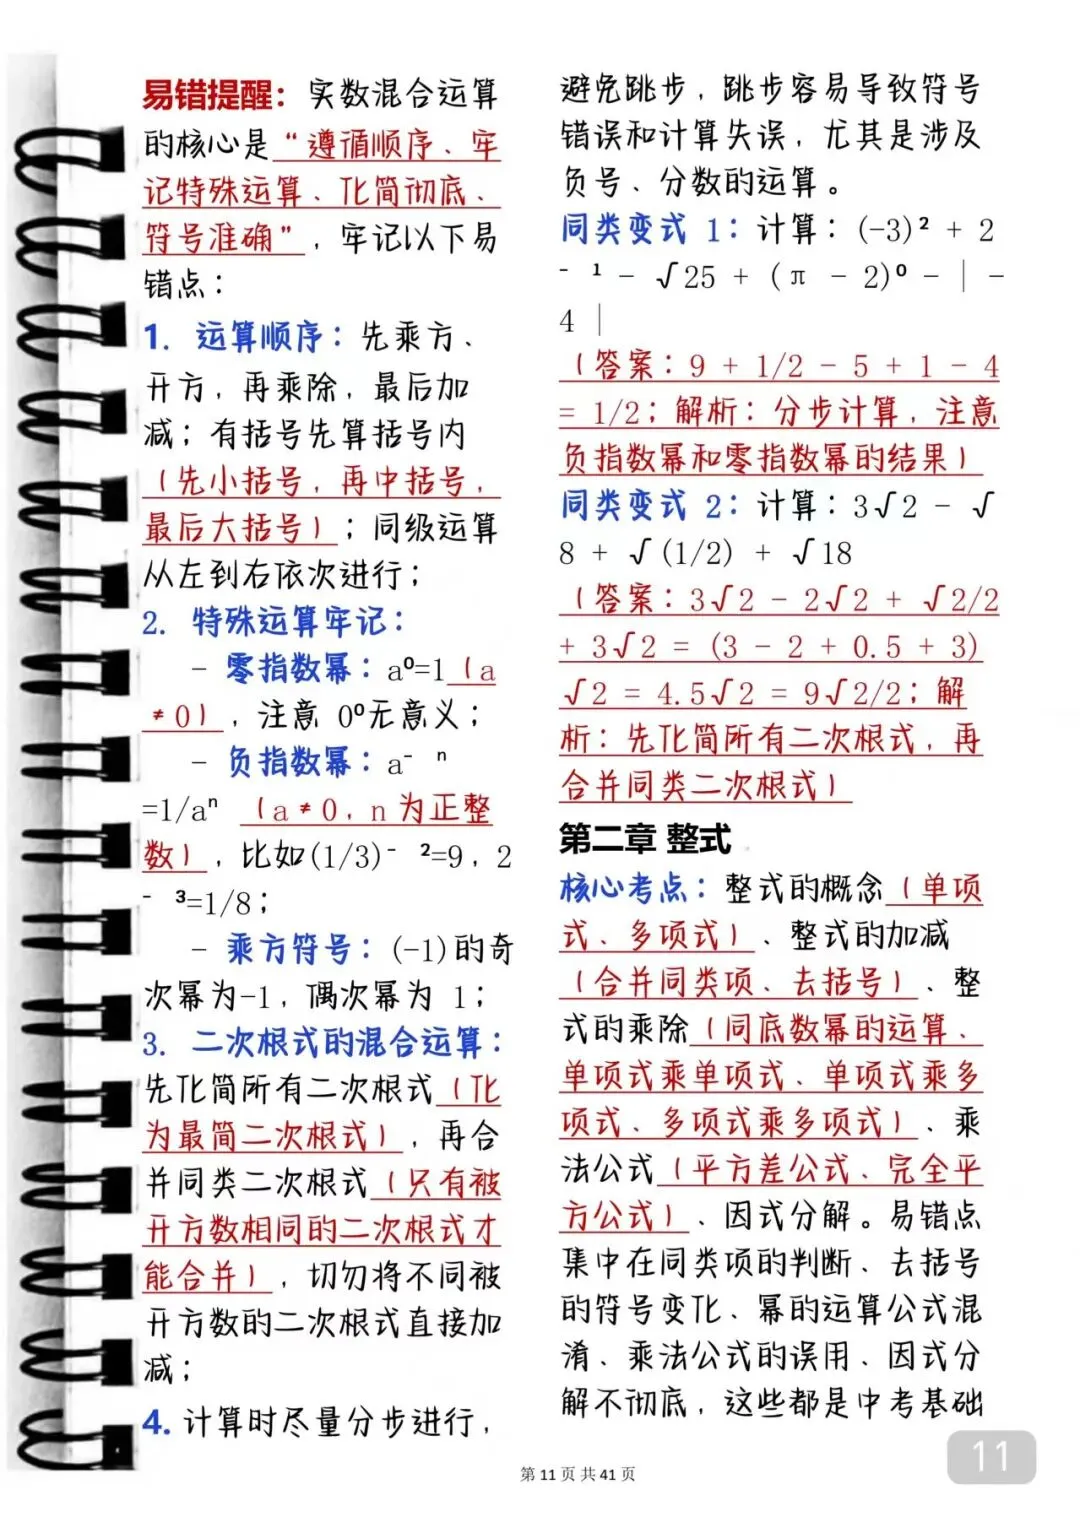 易错提醒：实数混合运算
的核心是“遵循顺序、牢
记特殊运算、化简彻底、
符号准确”，牢记以下易
错点：
1. 运算顺序：先乘方、
开方，再乘除，最后加
减；有括号先算括号内
（先小括号，再中括号，
最后大括号）；同级运算
从左到右依次进行；
2. 特殊运算牢记：
- 零指数幂：a⁰=1（a
≠0），注意 0⁰无意义；
- 负指数幂：a⁻ ⁿ
=1/aⁿ （a≠0，n 为正整
数），比如(1/3)⁻ ²=9，2
⁻ ³=1/8；
- 乘方符号：(-1)的奇
次幂为-1，偶次幂为 1；
3. 二次根式的混合运算：
先化简所有二次根式（化
为最简二次根式），再合
并同类二次根式（只有被
开方数相同的二次根式才
能合并），切勿将不同被
开方数的二次根式直接加
减；
4. 计算时尽量分步进行，
避免跳步，跳步容易导致符号
错误和计算失误，尤其是涉及
负号、分数的运算。
同类变式 1：计算：(-3)² + 2
⁻ ¹ - √25 + (π - 2)⁰ - | -
4 |
（答案：9 + 1/2 - 5 + 1 - 4
= 1/2；解析：分步计算，注意
负指数幂和零指数幂的结果）
同类变式 2：计算：3√2 - √
8 + √(1/2) + √18
（答案：3√2 - 2√2 + √2/2
+ 3√2 = (3 - 2 + 0.5 + 3)
√2 = 4.5√2 = 9√2/2；解
析：先化简所有二次根式，再
合并同类二次根式）
第二章 整式
核心考点：整式的概念（单项
式、多项式）、整式的加减
（合并同类项、去括号）、整
式的乘除（同底数幂的运算、
单项式乘单项式、单项式乘多
项式、多项式乘多项式）、乘
法公式（平方差公式、完全平
方公式）、因式分解。易错点
集中在同类项的判断、去括号
的符号变化、幂的运算公式混
淆、乘法公式的误用、因式分
解不彻底，这些都是中考基础
第 11 页 共 41 页
11